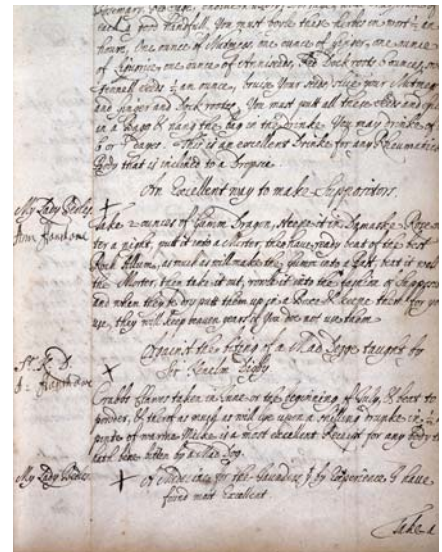 Rosemary,
each a good handfull, You must boyle these herbes in wort ½ an
hour, One ounce of Nutmegs, one ounce of Ginger, one ounce
of Liquorice, one ounce of Anniseeds, Red Dock roots 6 ounces,
fennell seeds ½ an ounce, bruise Your seeds, slice your Nutmegs
and ginger and Dock rootes, You must putt all these seeds and
in a Bagg & hang the bag in the Drinke. You may drinke of
6 or 7 dayes. This is an excellent Drinke for any Rheumatick
Body that is inclined to a Dropsie
An Excellent way to make Suppositors.
My Lady
Ann Fanshawe
Take 2 ounces of Gumm Dragon, steepe it in Damaske Rose
ter a night, putt it into a Morter, then have ready beat of the best
Rock Allum, as much as will make the Gumm into a Past, beat it well
the Morter, then take it out, rowle it into the fashion of
and when they be dry putt them up in a Boxe & keepe them for your
use, they will keep many years if You doe not use them
Against the biting of a Mad Dogge taught by
Sr Kenelm Digby
Sr. K. D.
A: Fanshawe
Crabbs Clawes taken in June or the beginning of July, & beat to
powder, & therof as much as will lye upon a shilling drunke in ½ a
pinte of warme Milke is a most excellent Receipt for any body
hath bine bitten by a Mad Dog.
My Lady
A Medicine for the Jaundies & by Experience I have
found most Excellent
Take a